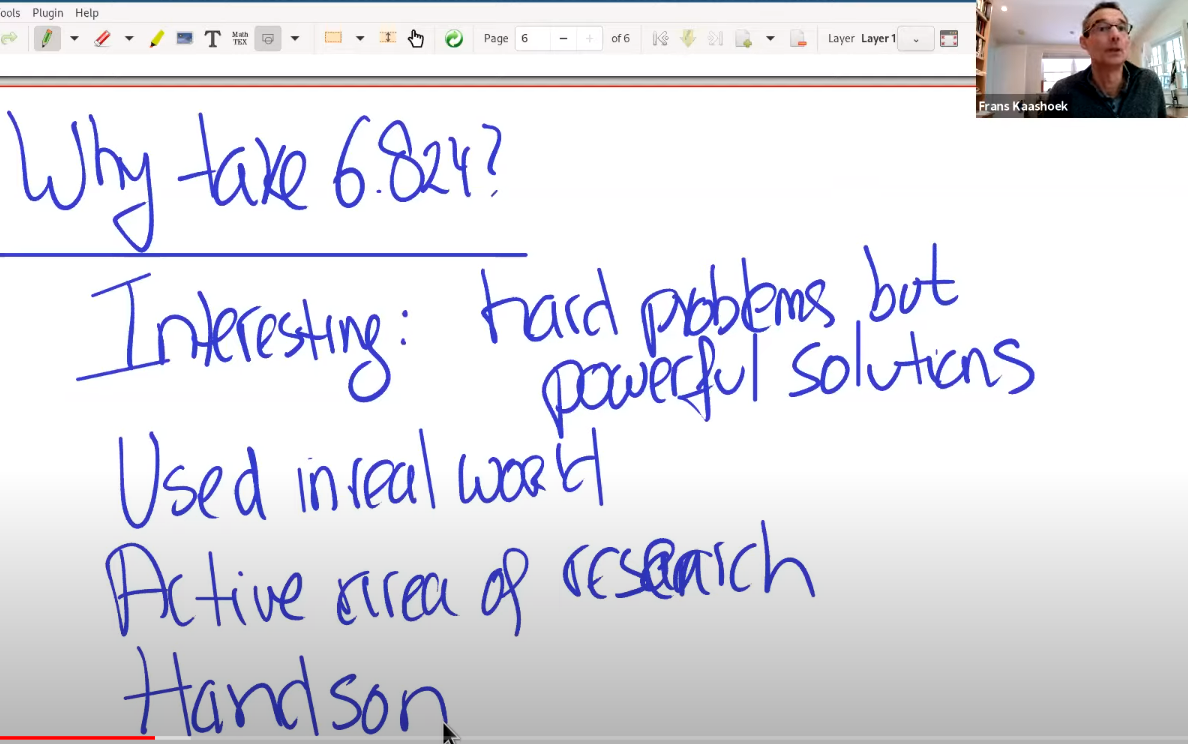 ools Plugin Help
T Math TEX Page 6 of 6 Layer Layer 1
Frans Kaashoek
Why take 6.824?
Interesting: hard problems but
powerful solutions
Used in real world
Active area of research
Hands on